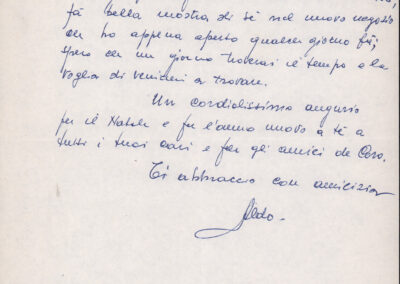 fà bella mostra di sé nel nuovo negozio
che ho appena aperto qualche giorno fà;
spero che un giorno troverai il tempo e la
voglia di venirmi a trovare.
Un cordialissimo augurio
per il Natale e per l'anno nuovo a te a
tutti i tuoi cari e per gli amici de Coro.
Ti abbraccio con amicizia
Aldo-